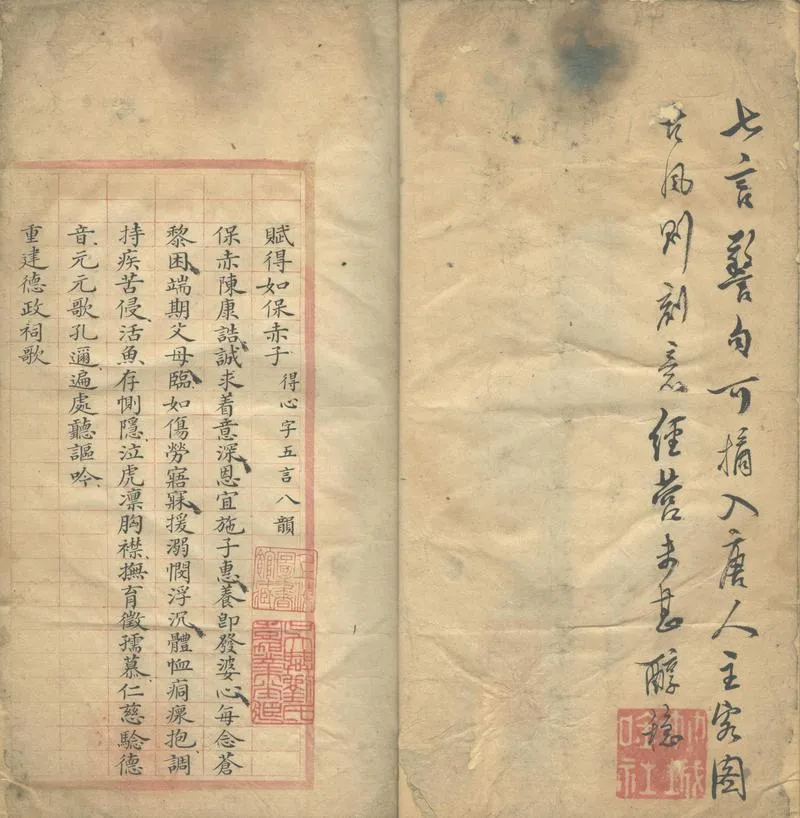 七言警句可摘入唐人主客圖
古風則刻意經營未甚醇穩
竹城
吟社
賦得如保赤子 得心字五言八韻
保赤陳康誥誠求着意深恩宜施子惠養卽發婆心每念蒼
黎困端期父母臨如傷勞寤寐援溺憫浮沉體恤痌瘝抱調
持疾苦侵活魚存惻隱泣虎凜胸襟撫育徵孺慕仁慈驗德
音元元歌孔邇遍處聽謳吟
重建德政祠歌